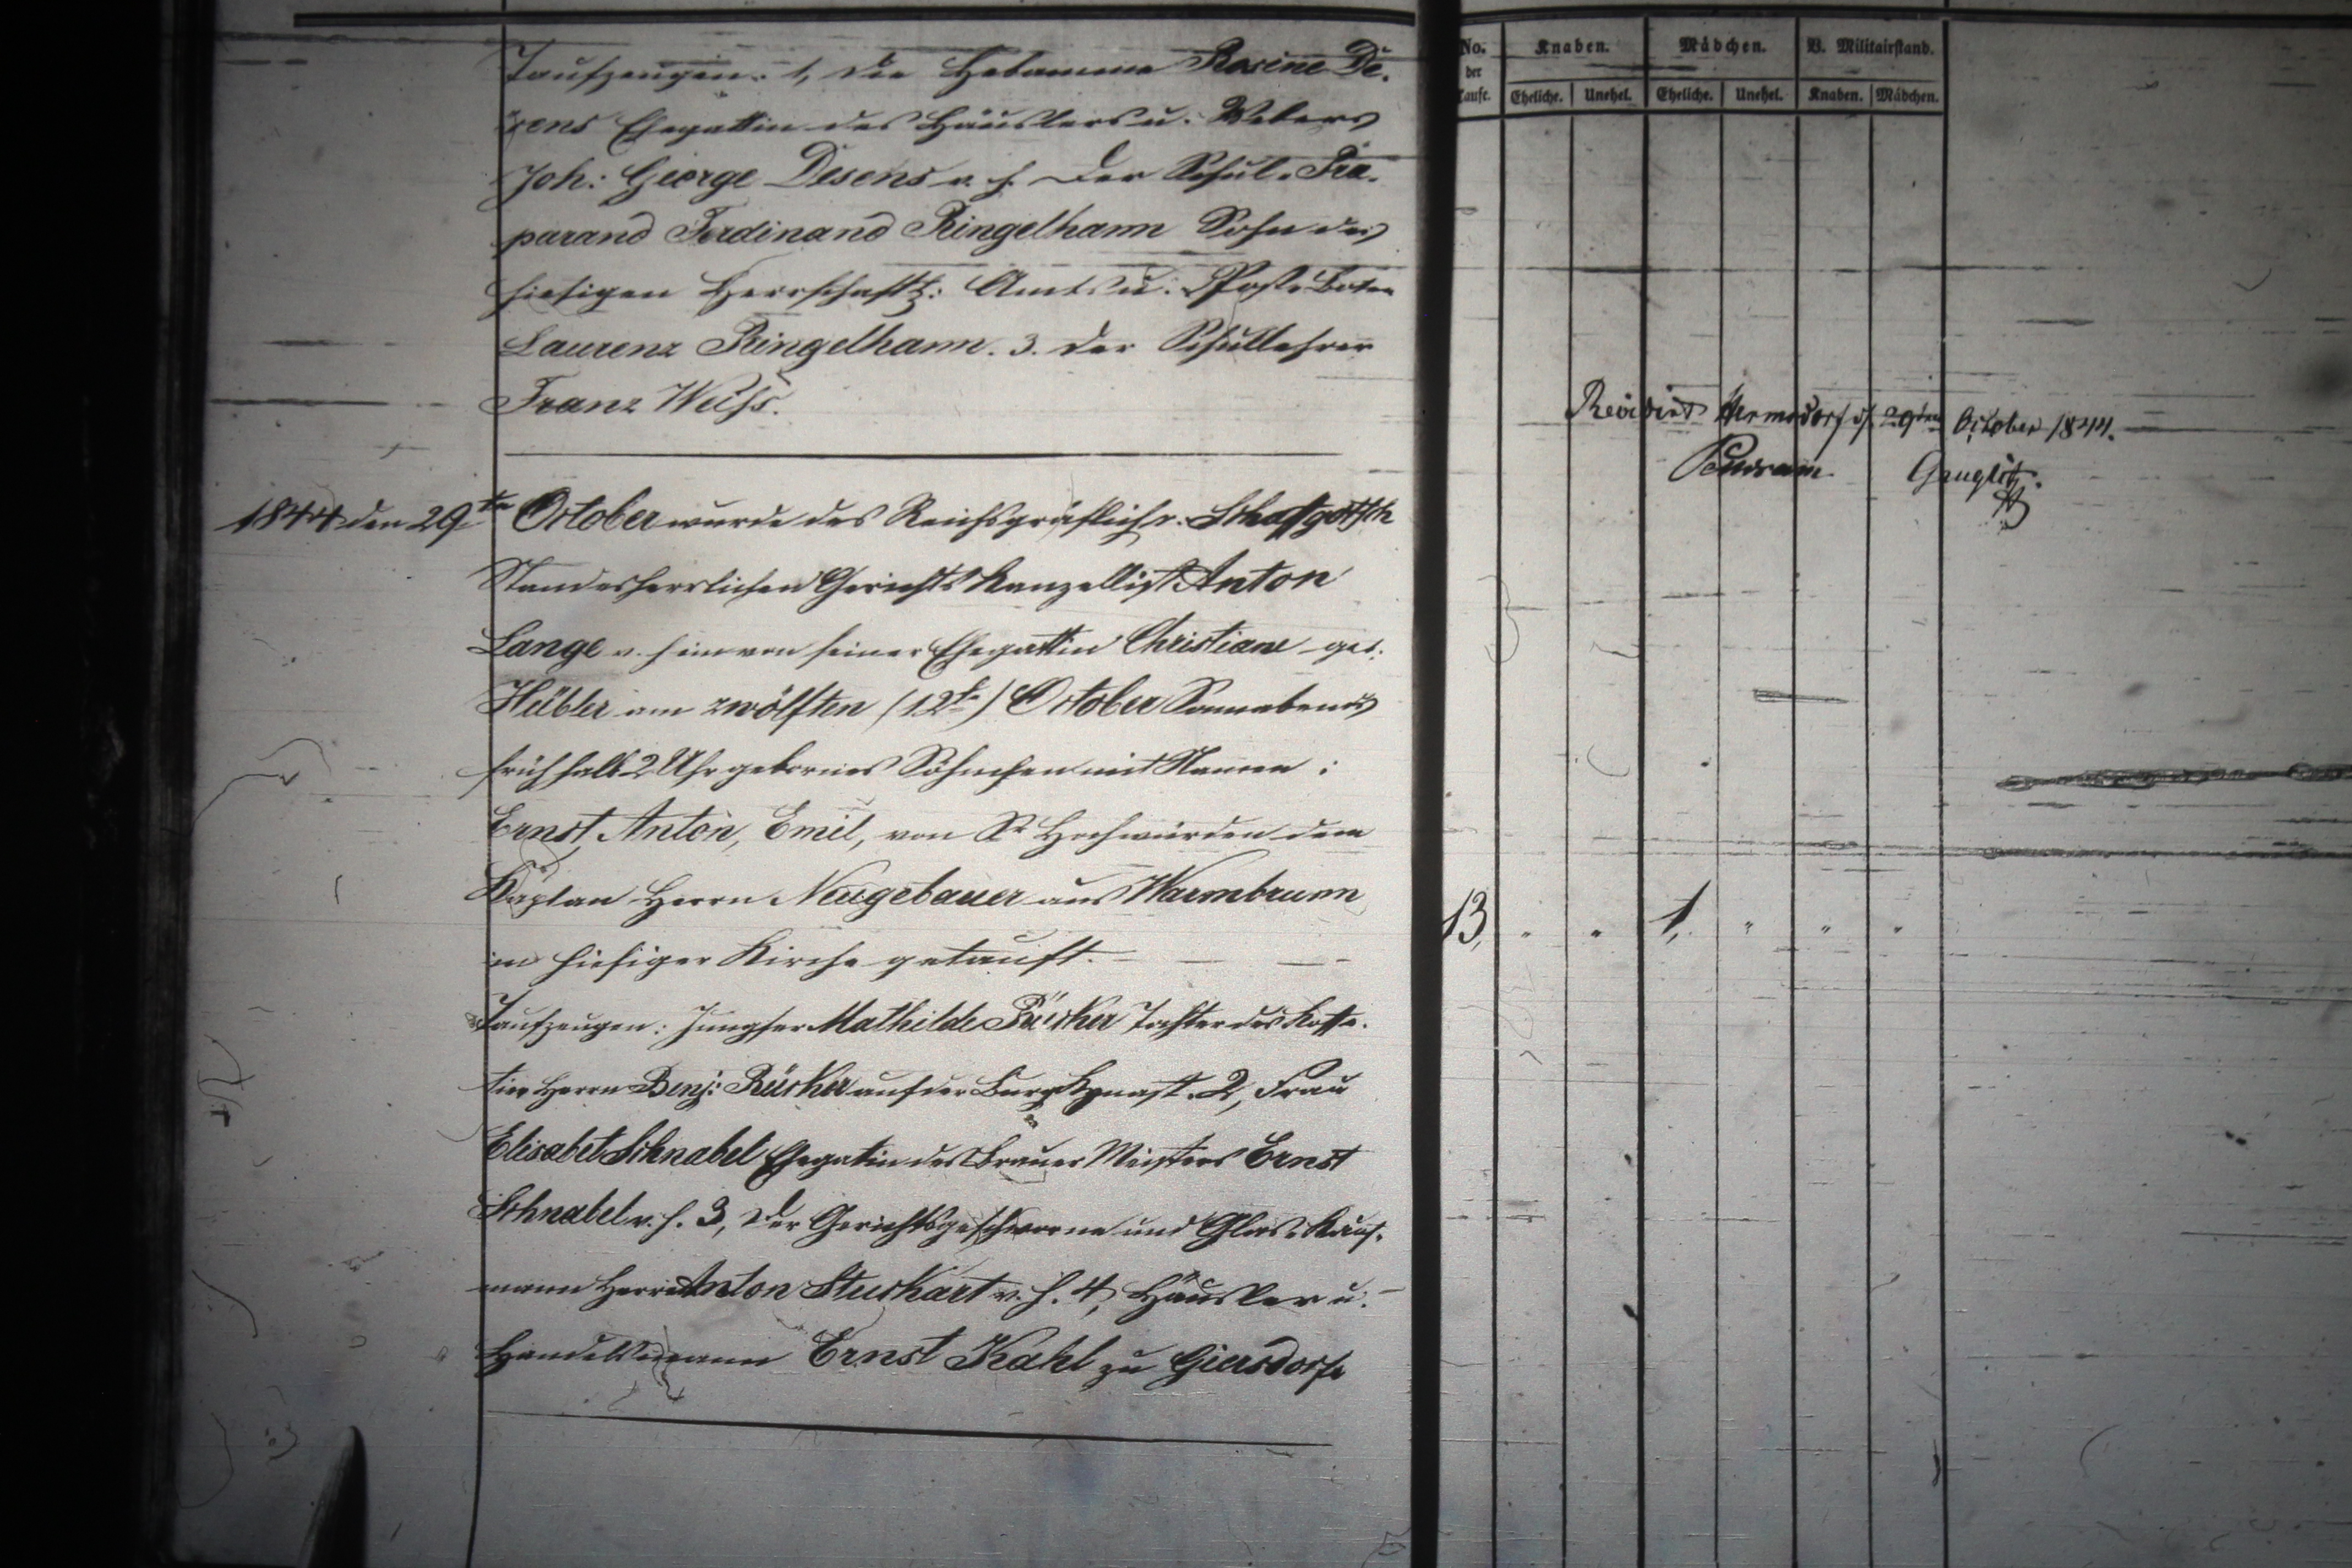 Taufzeugen: 1, die Hebamme Rosine De-
sens Ehegattin des Häuslers u. Webers
Joh: George Desens v. h. Der Schul-Prä-
parand Ferdinand Ringelhann Sohn des
hiesigen Herrschaftl: Amts u. Post-Boten
Laurenz Ringelhann. 3. der Schullehrer
Franz Weiss.
1844 den 29ten October wurde des Reichsgräflich v. Schaffgotsch
Standesherrlichen Gerichts Kanzellist Anton
Lange v. h. ein von seiner Ehegattin Christiane geb.
Hübler am zwölften (12te) October Sonnabends
früh halb 2 Uhr gebornes Söhnchen mit Namen:
Ernst, Anton, Emil, von Sr Hochwürden dem
Kaplan Herrn Neugebauer aus Warmbrunn
in hiesiger Kirche getauft.
Taufzeugen: Jungfer Mathilde Rücker Tochter des Kaffe-
tier Herrn Benj: Rücker auf der Burg Kynast. 2, Frau
Elisabet Schnabel Ehegatin des Brauer Meisters Ernst
Schnabel v. h. 3, Der Gerichtsgeschworne und Glas-Kauf-
mann Herr Anton Stuckart v. h. 4, Häusler u.
Handelsmann Ernst Kahl zu Giersdorf
No. der Taufe. Knaben. Mädchen. V. Militairstand.
Eheliche. Unehel. Eheliche. Unehel. Knaben. Mädchen.
Revidirt Hermsdorf d. 29ten October 1844.
13, " " 1, " " "